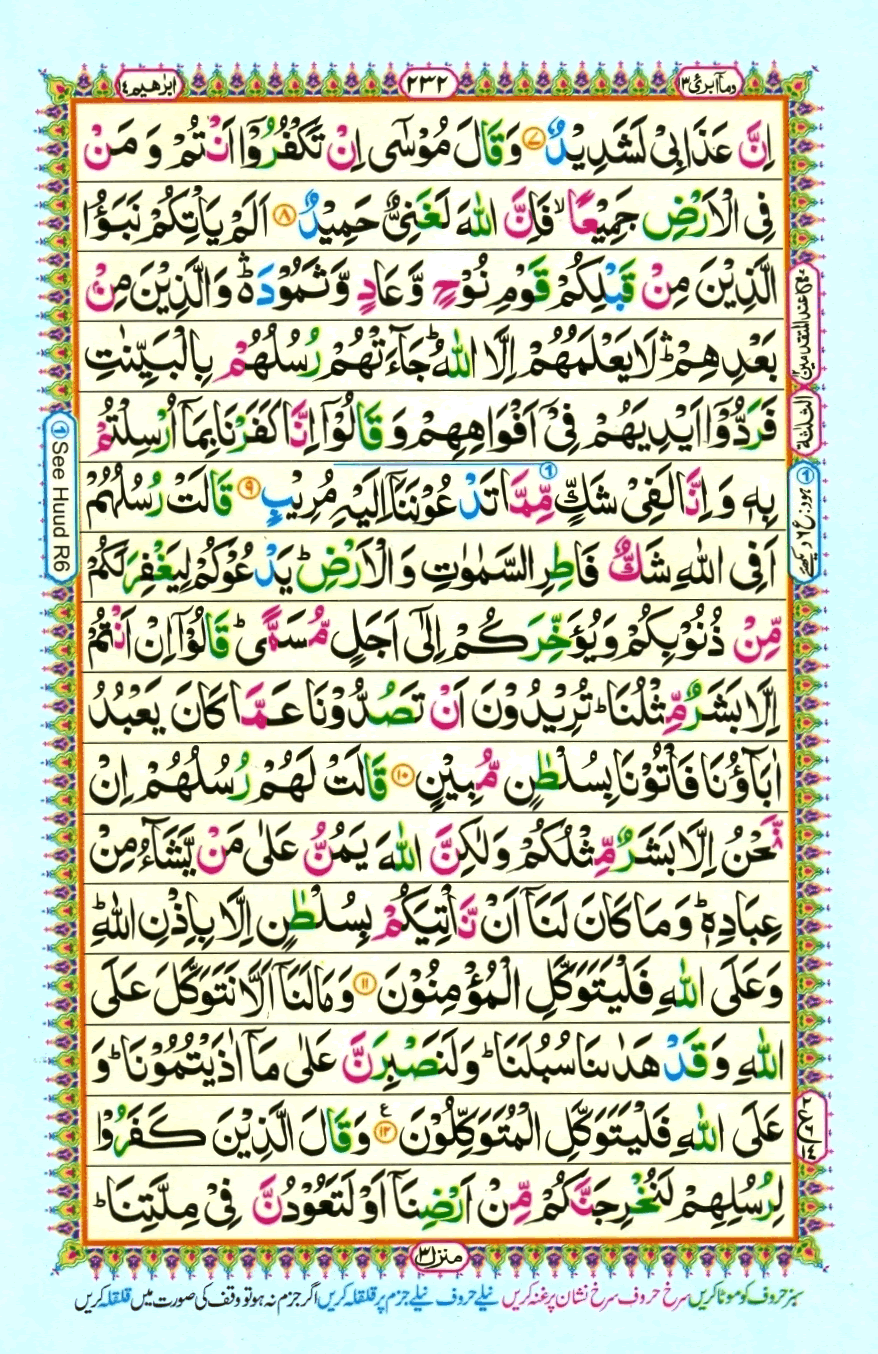 وما ابرئ ١٣
٢٣٢
ابرٰهیم ١٤
اِنَّ عَذَابِیْ لَشَدِیْدٌ ﴿۷﴾ وَقَالَ مُوْسٰۤی اِنْ تَكْفُرُوْۤا اَنْتُمْ وَ مَنْ
فِی الْاَرْضِ جَمِیْعًا ۙ فَاِنَّ اللّٰهَ لَغَنِیٌّ حَمِیْدٌ ﴿۸﴾ اَلَمْ یَاْتِكُمْ نَبَؤُا
الَّذِیْنَ مِنْ قَبْلِكُمْ قَوْمِ نُوْحٍ وَّ عَادٍ وَّ ثَمُوْدَ ۛؕ وَ الَّذِیْنَ مِنْۢ
بَعْدِهِمْ ۛؕ لَا یَعْلَمُهُمْ اِلَّا اللّٰهُ ؕ جَآءَتْهُمْ رُسُلُهُمْ بِالْبَیِّنٰتِ
فَرَدُّوْۤا اَیْدِیَهُمْ فِیْۤ اَفْوَاهِهِمْ وَ قَالُوْۤا اِنَّا كَفَرْنَا بِمَاۤ اُرْسِلْتُمْ
بِهٖ وَ اِنَّا لَفِیْ شَكٍّ مِّمَّا تَدْعُوْنَنَاۤ اِلَیْهِ مُرِیْبٍ ﴿۹﴾ قَالَتْ رُسُلُهُمْ
اَفِی اللّٰهِ شَكٌّ فَاطِرِ السَّمٰوٰتِ وَ الْاَرْضِ ؕ یَدْعُوْكُمْ لِیَغْفِرَ لَكُمْ
مِّنْ ذُنُوْبِكُمْ وَ یُؤَخِّرَكُمْ اِلٰۤی اَجَلٍ مُّسَمًّی ؕ قَالُوْۤا اِنْ اَنْتُمْ
اِلَّا بَشَرٌ مِّثْلُنَا ؕ تُرِیْدُوْنَ اَنْ تَصُدُّوْنَا عَمَّا كَانَ یَعْبُدُ
اٰبَآؤُنَا فَاْتُوْنَا بِسُلْطٰنٍ مُّبِیْنٍ ﴿۱۰﴾ قَالَتْ لَهُمْ رُسُلُهُمْ اِنْ
نَّحْنُ اِلَّا بَشَرٌ مِّثْلُكُمْ وَ لٰكِنَّ اللّٰهَ یَمُنُّ عَلٰی مَنْ یَّشَآءُ مِنْ
عِبَادِهٖ ؕ وَ مَا كَانَ لَنَاۤ اَنْ نَّاْتِیَكُمْ بِسُلْطٰنٍ اِلَّا بِاِذْنِ اللّٰهِ ؕ
وَ عَلَی اللّٰهِ فَلْیَتَوَكَّلِ الْمُؤْمِنُوْنَ ﴿۱۱﴾ وَ مَا لَنَاۤ اَلَّا نَتَوَكَّلَ عَلَی
اللّٰهِ وَ قَدْ هَدٰىنَا سُبُلَنَا ؕ وَ لَنَصْبِرَنَّ عَلٰی مَاۤ اٰذَیْتُمُوْنَا ؕ وَ
عَلَی اللّٰهِ فَلْیَتَوَكَّلِ الْمُتَوَكِّلُوْنَ ﴿۱۲﴾ وَ قَالَ الَّذِیْنَ كَفَرُوْا
لِرُسُلِهِمْ لَنُخْرِجَنَّكُمْ مِّنْ اَرْضِنَاۤ اَوْ لَتَعُوْدُنَّ فِیْ مِلَّتِنَا ؕ
مع عند المتقدمین ۱۲
الثلثة
① ہود: ع ۶ دیکھئے
① See Huud R6
ع ۲ ۶ ۱۴
منزل ٣
سبز حروف کو موٹا کریں سرخ حروف سرخ نشان پر غنہ کریں نیلے حروف نیلے جزم پر قلقلہ کریں اگر جزم نہ ہو تو وقف کی صورت میں قلقلہ کریں